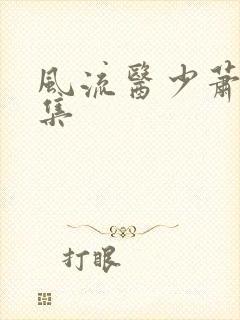 風流醫少蕭
集
打眼